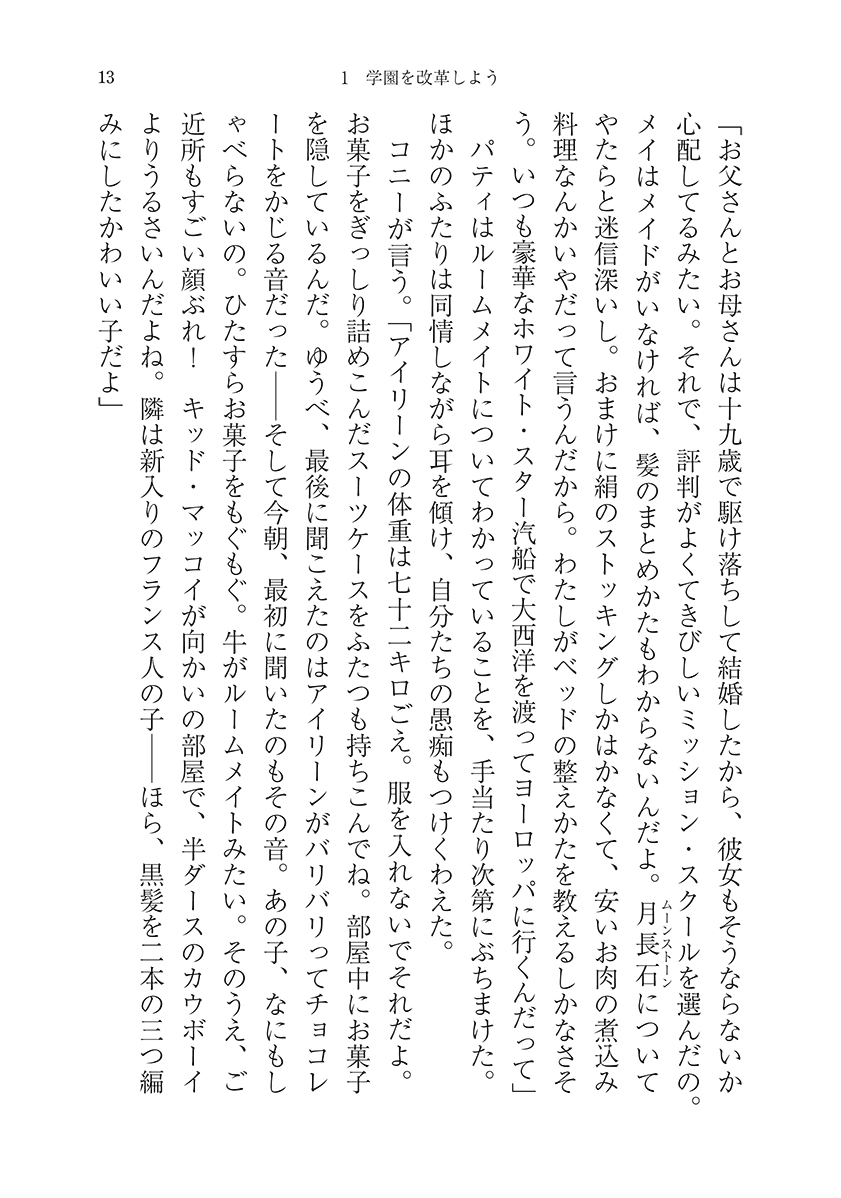 13
1　学園を改革しよう
「お父さんとお母さんは十九歳で駆け落ちして結婚したから、彼女もそうならないか
心配してるみたい。それで、評判がよくてきびしいミッション・スクールを選んだの。
メイはメイドがいなければ、髪のまとめかたもわからないんだよ。月長石について
ムーンストーン
やたらと迷信深いし。おまけに絹のストッキングしかはかなくて、安いお肉の煮込み
料理なんかいやだって言うんだから。わたしがベッドの整えかたを教えるしかなさそ
う。いつも豪華なホワイト・スター汽船で大西洋を渡ってヨーロッパに行くんだって」
　パティはルームメイトについてわかっていることを、手当たり次第にぶちまけた。
ほかのふたりは同情しながら耳を傾け、自分たちの愚痴もつけくわえた。
　コニーが言う。「アイリーンの体重は七十二キロごえ。服を入れないでそれだよ。
お菓子をぎっしり詰めこんだスーツケースをふたつも持ちこんでね。部屋中にお菓子
を隠しているんだ。ゆうべ、最後に聞こえたのはアイリーンがバリバリってチョコレ
ートをかじる音だった――そして今朝、最初に聞いたのもその音。あの子、なにもし
ゃべらないの。ひたすらお菓子をもぐもぐ。牛がルームメイトみたい。そのうえ、ご
近所もすごい顔ぶれ！　キッド・マッコイが向かいの部屋で、半ダースのカウボーイ
よりうるさいんだよね。隣は新入りのフランス人の子――ほら、黒髪を二本の三つ編
みにしたかわいい子だよ」